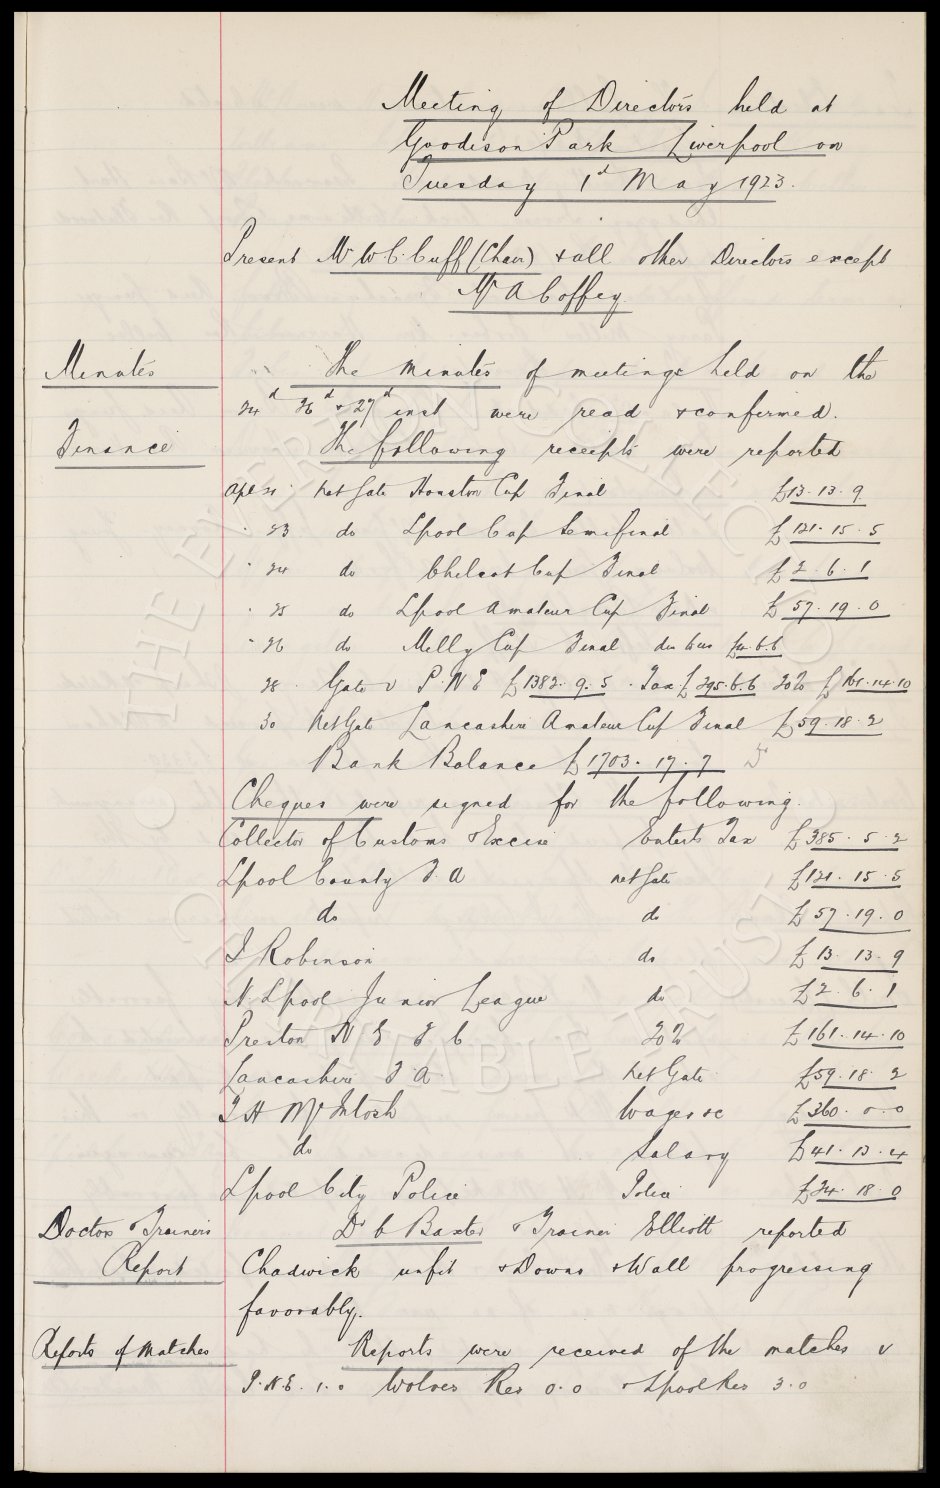 Meeting of Directors held at
Goodison Park Liverpool on
Tuesday 1st May 1923.
Present Mr W C Cuff (Chair) & all other Directors except
Mr A Coffey
Minutes The Minutes of meetings held on the
24th 26th & 27th inst were read & confirmed.
Finance The following receipts were reported
Apl 21 Net Gate Houston Cup Final £13.13.9
" 23 do Lpool Cup Semifinal £121.15.5
" 24 do Cup Final £2.6.1
" 25 do Lpool Amateur Cup Final £57.19.0
" 26 do Melly Cup Final £4.6.6
28 Gate v P.N.E £1382.9.5. Tax £295.6.6 20% £161.14.10
30 Net Gate Lancashire Amateur Cup Final £59.18.2
Bank Balance £1703.17.7
Cheques were signed for the following.
Collector of Customs & Excise Entert Tax £385.5.2
Lpool County F.A net Gate £121.15.5
do do £57.19.0
J Robinson do £13.13.9
N. Lpool Junior League do £2.6.1
Preston N E F C 20% £161.14.10
Lancashire F.A. Net Gate £59.18.2
T H McIntosh Wages &c £360.0.0
do Salary £41.13.4
Lpool City Police Police £24.18.0
Doctor & Trainers Dr C Baxter & Trainer Elliott reported
Report Chadwick unfit & Downs & Wall progressing
favorably.
Reports of Matches Reports were received of the matches v
P.N.E. 1.0 Wolves Res 0.0 & Lpool Res 3.0
THE EVERTON COLLECTION
CHARITABLE TRUST